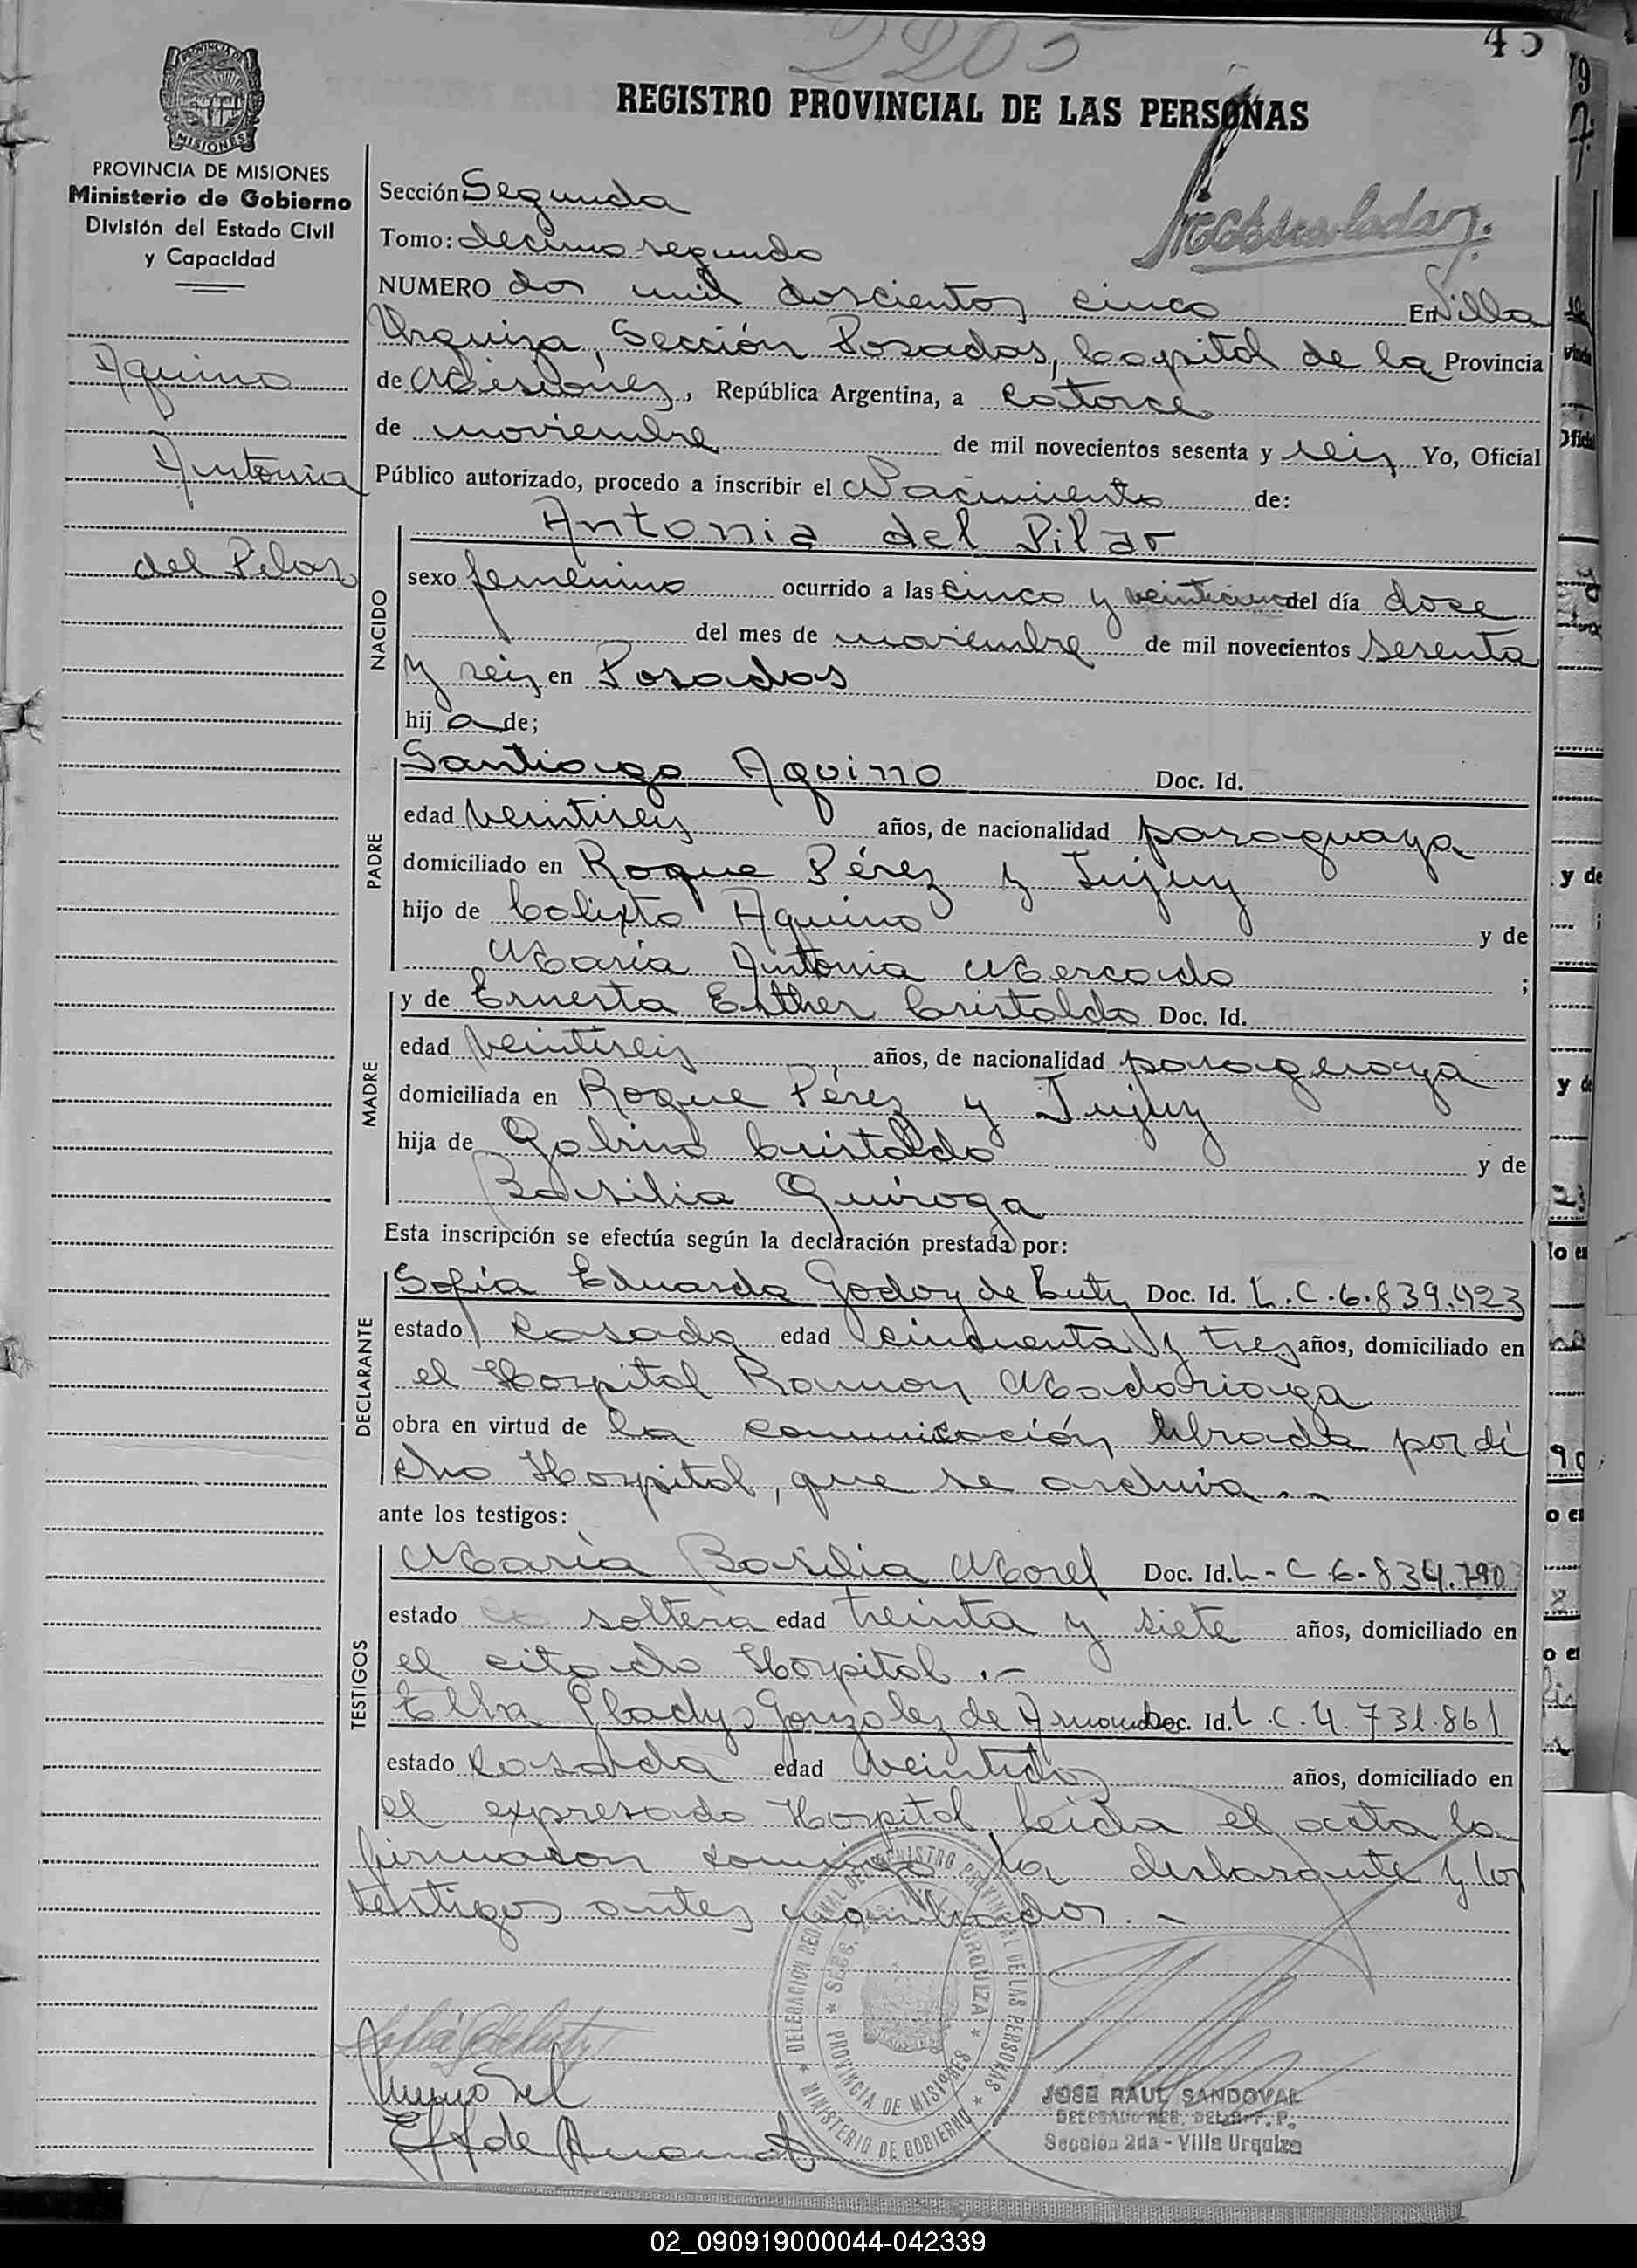 2205
45
REGISTRO PROVINCIAL DE LAS PERSONAS
PROVINCIA DE MISIONES
Ministerio de Gobierno
División del Estado Civil
y Capacidad
Aquino
Antonia
del Pilar
Sección Segunda
Tomo: decimo segundo
NUMERO dos mil doscientos cinco En Villa
Urquiza, Sección Posadas, Capital de la Provincia
de Misiones, República Argentina, a catorce
de noviembre de mil novecientos sesenta y seis Yo, Oficial
Público autorizado, procedo a inscribir el Nacimiento de:
NACIDO
Antonia del Pilar
sexo femenino ocurrido a las cinco y del día doce
del mes de noviembre de mil novecientos sesenta
y seis en Posadas
hija de;
PADRE
Santiago Aquino Doc. Id.
edad veintiseis años, de nacionalidad paraguaya
domiciliado en Roque Pérez y Jujuy
hijo de Calixto Aquino y de
María Antonia Mercado ;
MADRE
y de Ernesta Esther Cristaldo Doc. Id.
edad veintiseis años, de nacionalidad paraguaya
domiciliada en Roque Pérez y Jujuy
hija de Gabino Cristaldo y de
Basilia Quiroga
Esta inscripción se efectúa según la declaración prestada por:
DECLARANTE
Sofia Eduarda Godoy de Doc. Id. L.C. 6.839.423
estado casada edad cincuenta y tres años, domiciliado en
el Hospital Ramon Madariaga
obra en virtud de la comunicación librada por di
cho Hospital, que se archiva.-
ante los testigos:
TESTIGOS
María Basilia Morel Doc. Id. L-C 6-834.790
estado soltera edad treinta y siete años, domiciliado en
el citado Hospital .-
Elba Gladys Gonzalez de Doc. Id. L.C. 4.731.861
estado casada edad veintidos años, domiciliado en
el expresado Hospital, leida el acta la
firmaron conmigo la declarante y los
testigos antes nombrados.-
DELEGACION REGIONAL DEL REGISTRO PROVINCIAL DE LAS PERSONAS
MINISTERIO DE GOBIERNO
SECC. 2da. URQUIZA
PROVINCIA DE MISIONES
JOSE RAUL SANDOVAL
DELEGADO REG. DEL R. P. P.
Sección 2da - Villa Urquiza
02_090919000044-042339